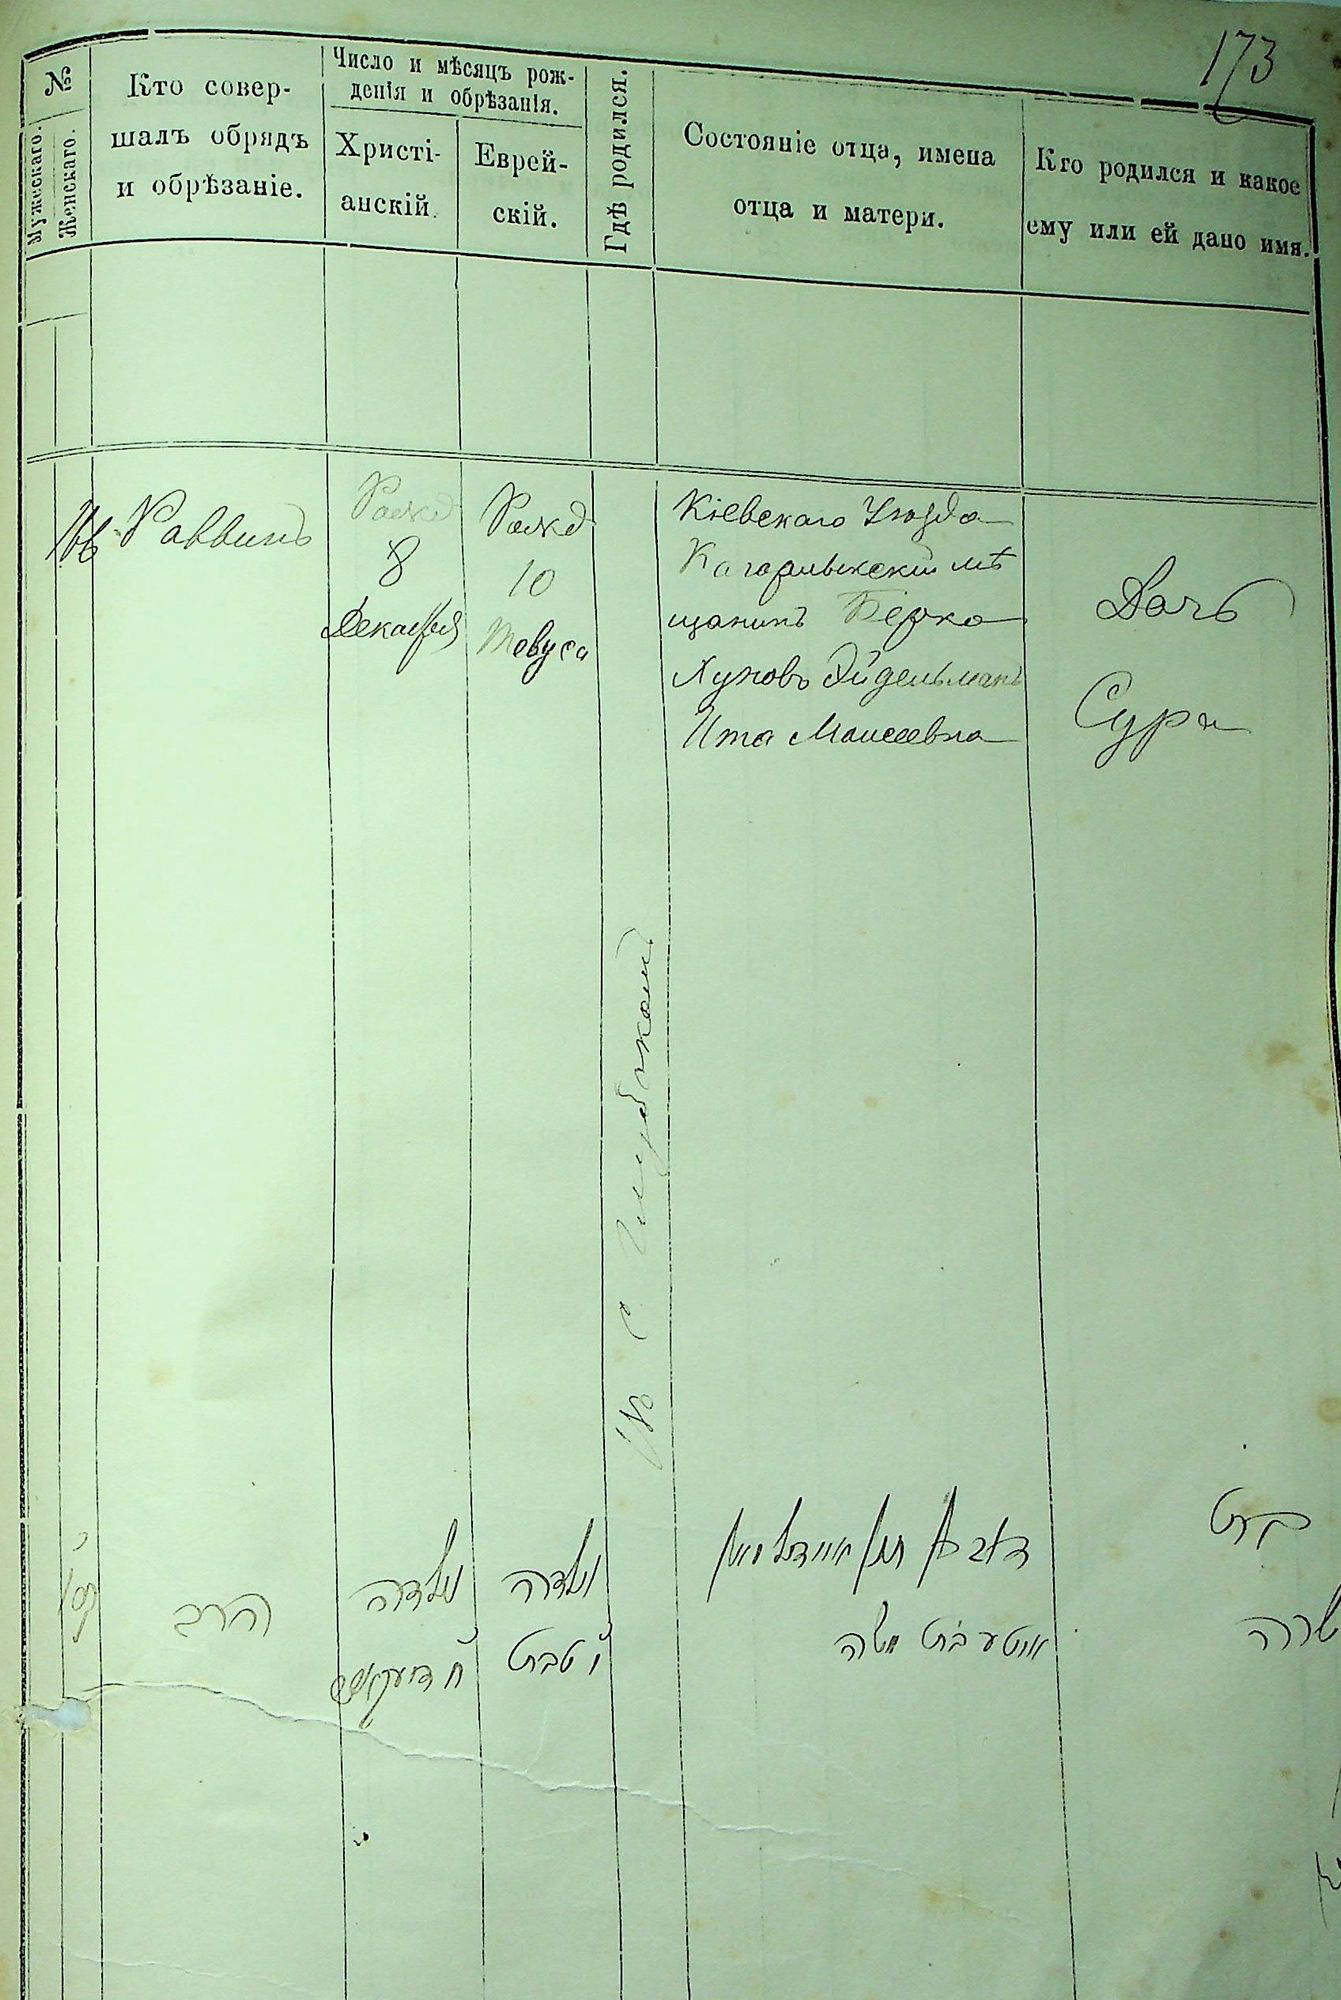 173
№
Мужескаго.
Женскаго.
Кто совер-
шалъ обрядъ
и обрѣзаніе.
Число и мѣсяцъ рож-
денія и обрѣзанія.
Христі-
анскій.
Еврей-
скій.
Гдѣ родился.
Состояніе отца, имена
отца и матери.
Кто родился и какое
ему или ей дано имя.
Раввинъ
Рожд
8
Декабря
Рожд
10
Тевуса
Кіевскаго Уѣзда
Кагарлыкскій мѣ
щанинъ Берко
Эйдельманъ
Ита Моисеевна
Дочь
Сура
Въ с
הרב
נולדה
נולדה
י טבת
איטע בת משה
שרה